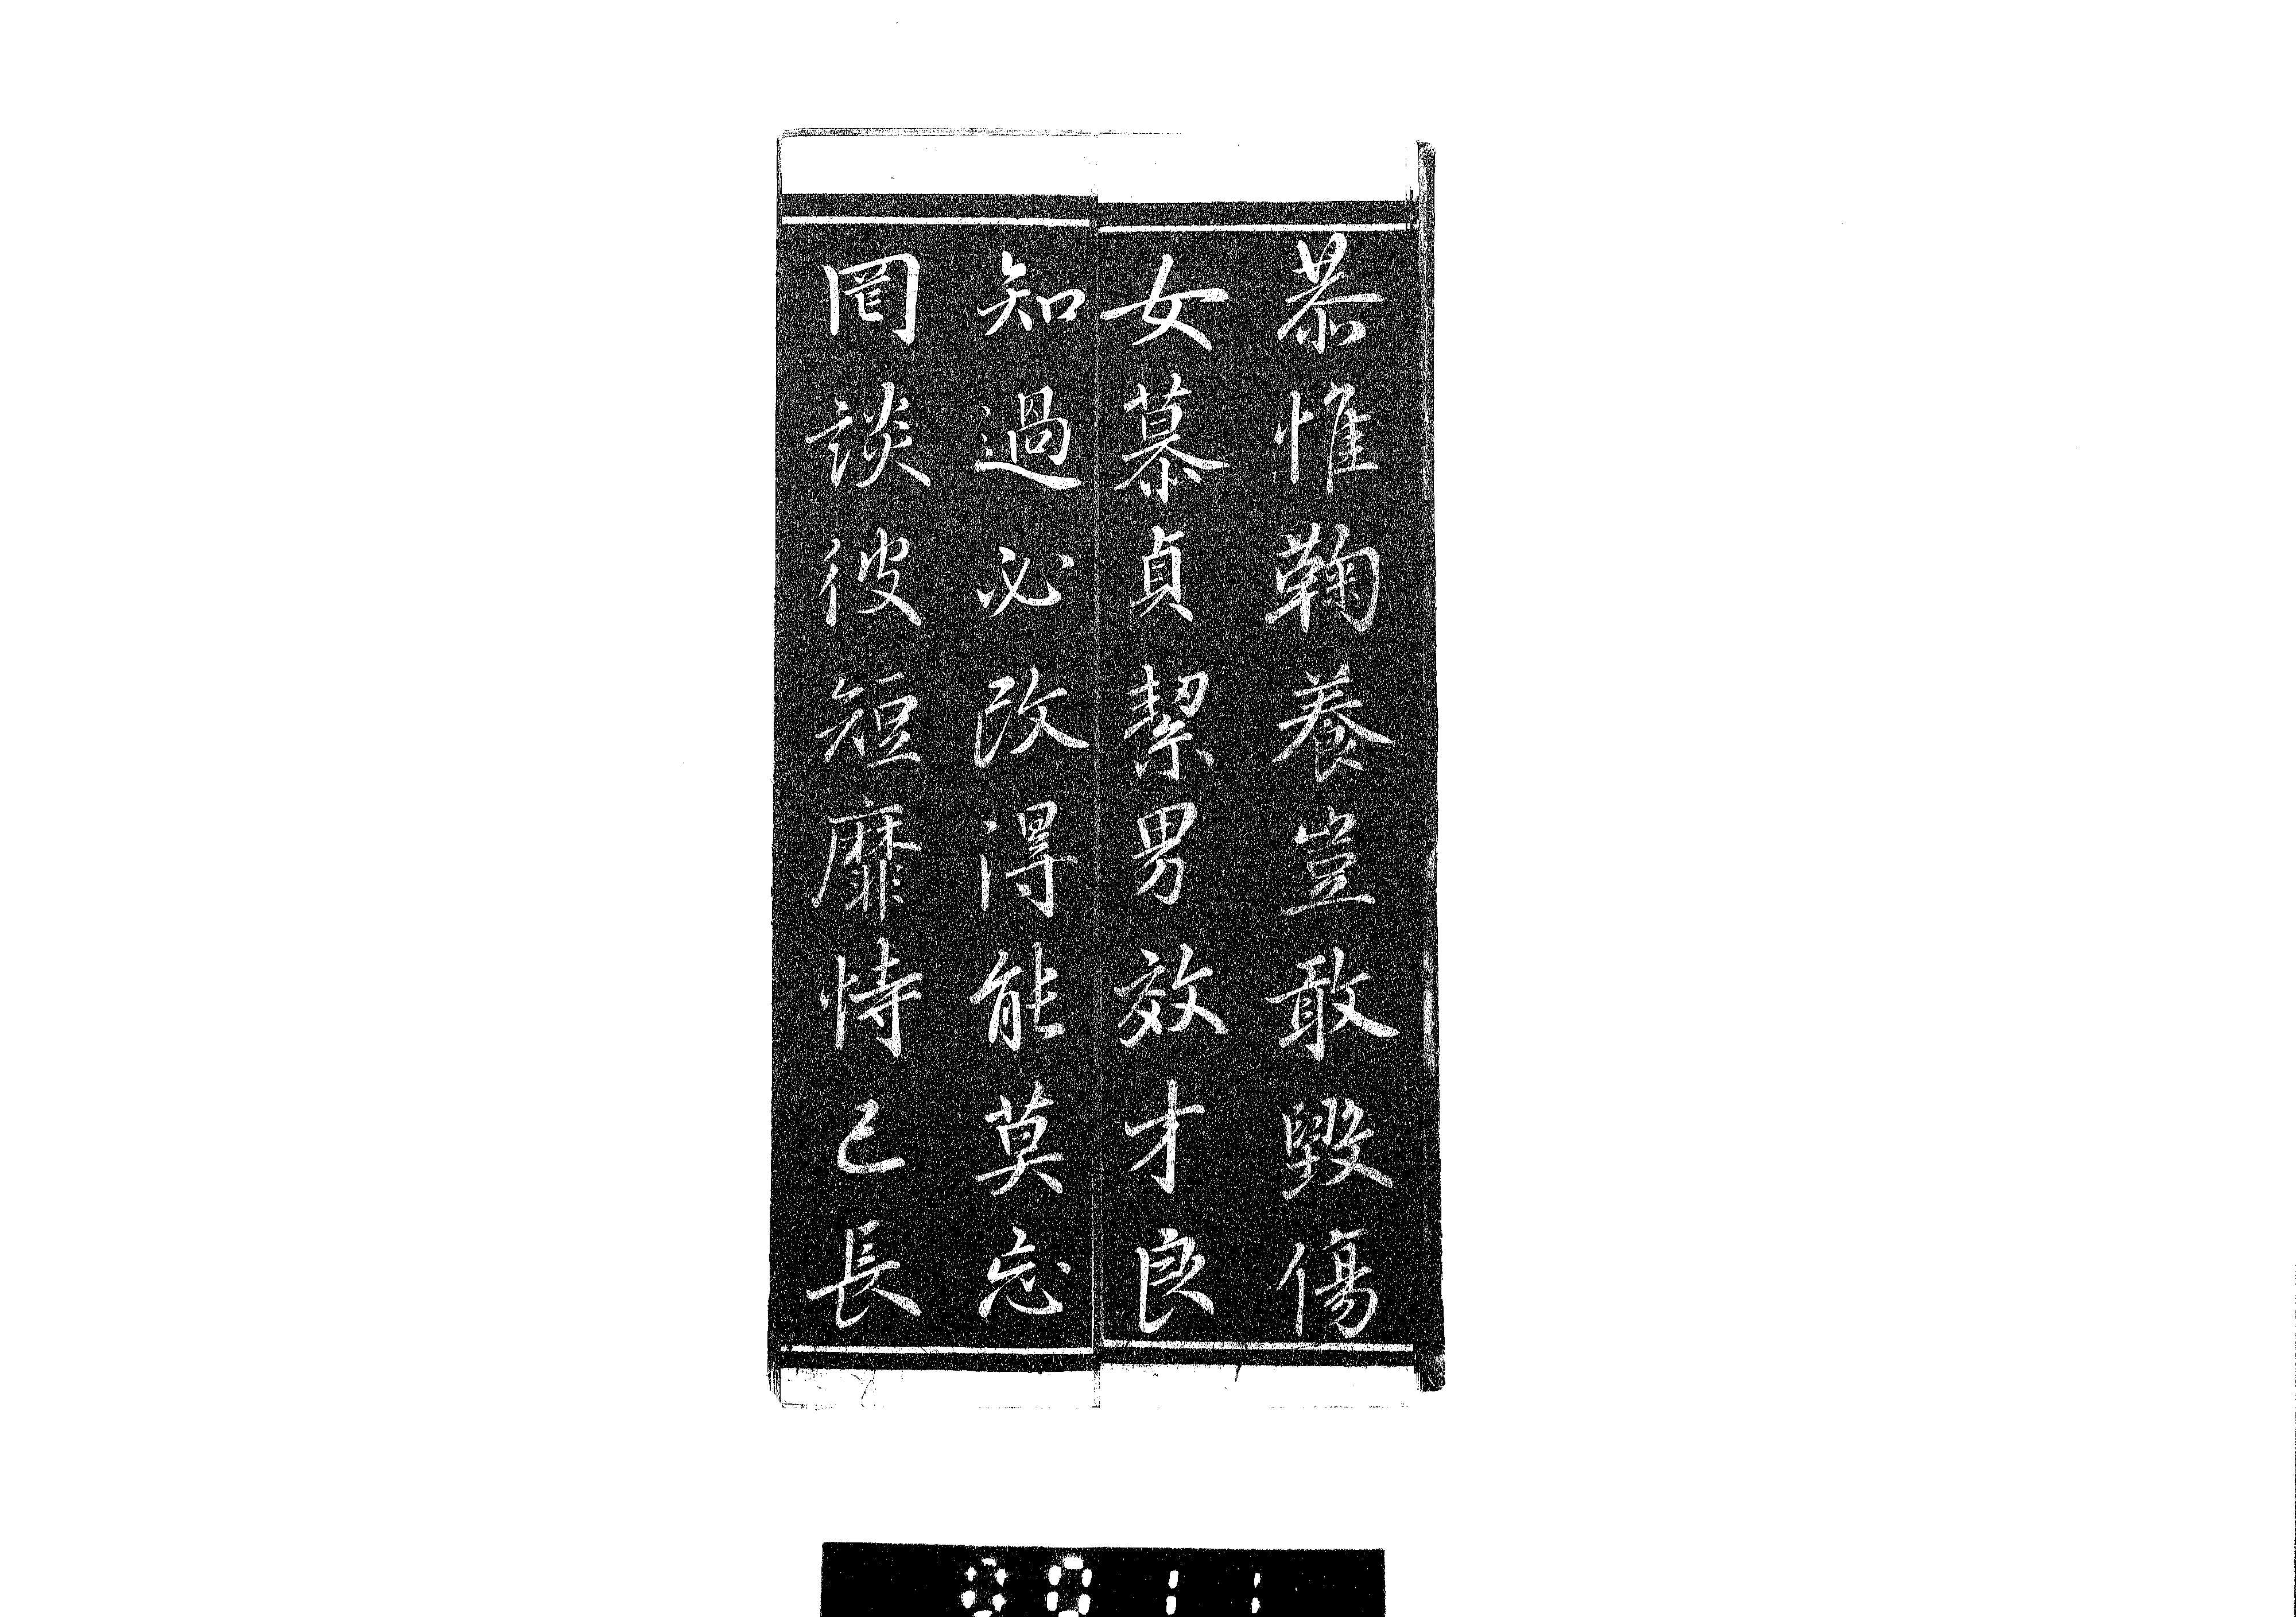 恭惟鞠養豈敢毀傷
女慕貞絜男效才良
知過必改得能莫忘
罔談彼短靡恃己長
0011